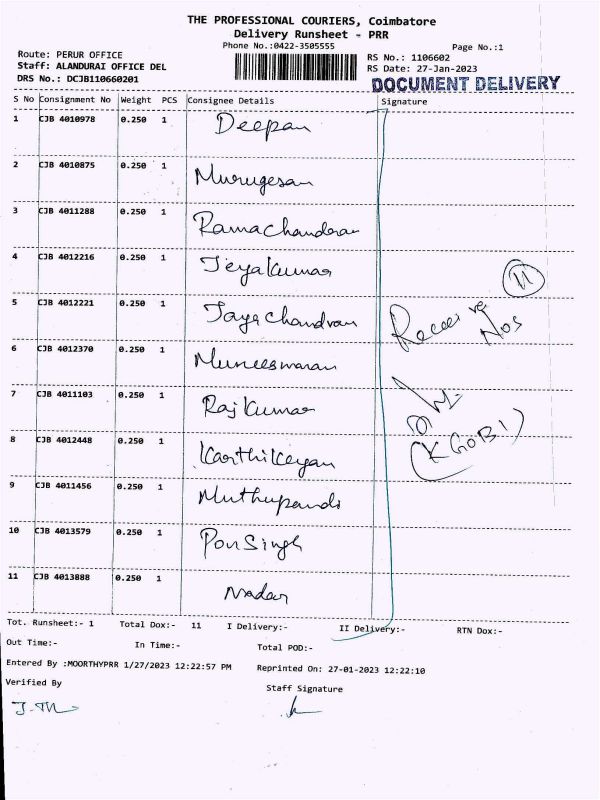 THE PROFESSIONAL COURIERS, Coimbatore
Delivery Runsheet - PRR
Phone No.:0422-3505555
Page No.:1
Route: PERUR OFFICE
RS No.: 1106602
Staff: ALANDURAI OFFICE DEL
RS Date: 27-Jan-2023
DRS No.: DCJB110660201
DOCUMENT DELIVERY
S No Consignment No Weight PCS Consignee Details Signature
1 CJB 4010978 0.250 1 Deepan
2 CJB 4010875 0.250 1 Murugesan
3 CJB 4011288 0.250 1 Ramachandran
4 CJB 4012216 0.250 1 Jeyakumar
11
5 CJB 4012221 0.250 1 Jayachandran
Nos
6 CJB 4012370 0.250 1 Muneeswaran
7 CJB 4011103 0.250 1 Rajkumar
8 CJB 4012448 0.250 1 Karthikeyan
(K GOBI)
9 CJB 4011456 0.250 1 Muthupandi
10 CJB 4013579 0.250 1 Ponsingh
11 CJB 4013888 0.250 1 Nadar
Tot. Runsheet:- 1 Total Dox:- 11 I Delivery:- II Delivery:- RTN Dox:-
Out Time:- In Time:- Total POD:-
Entered By :MOORTHYPRR 1/27/2023 12:22:57 PM Reprinted On: 27-01-2023 12:22:10
Verified By Staff Signature